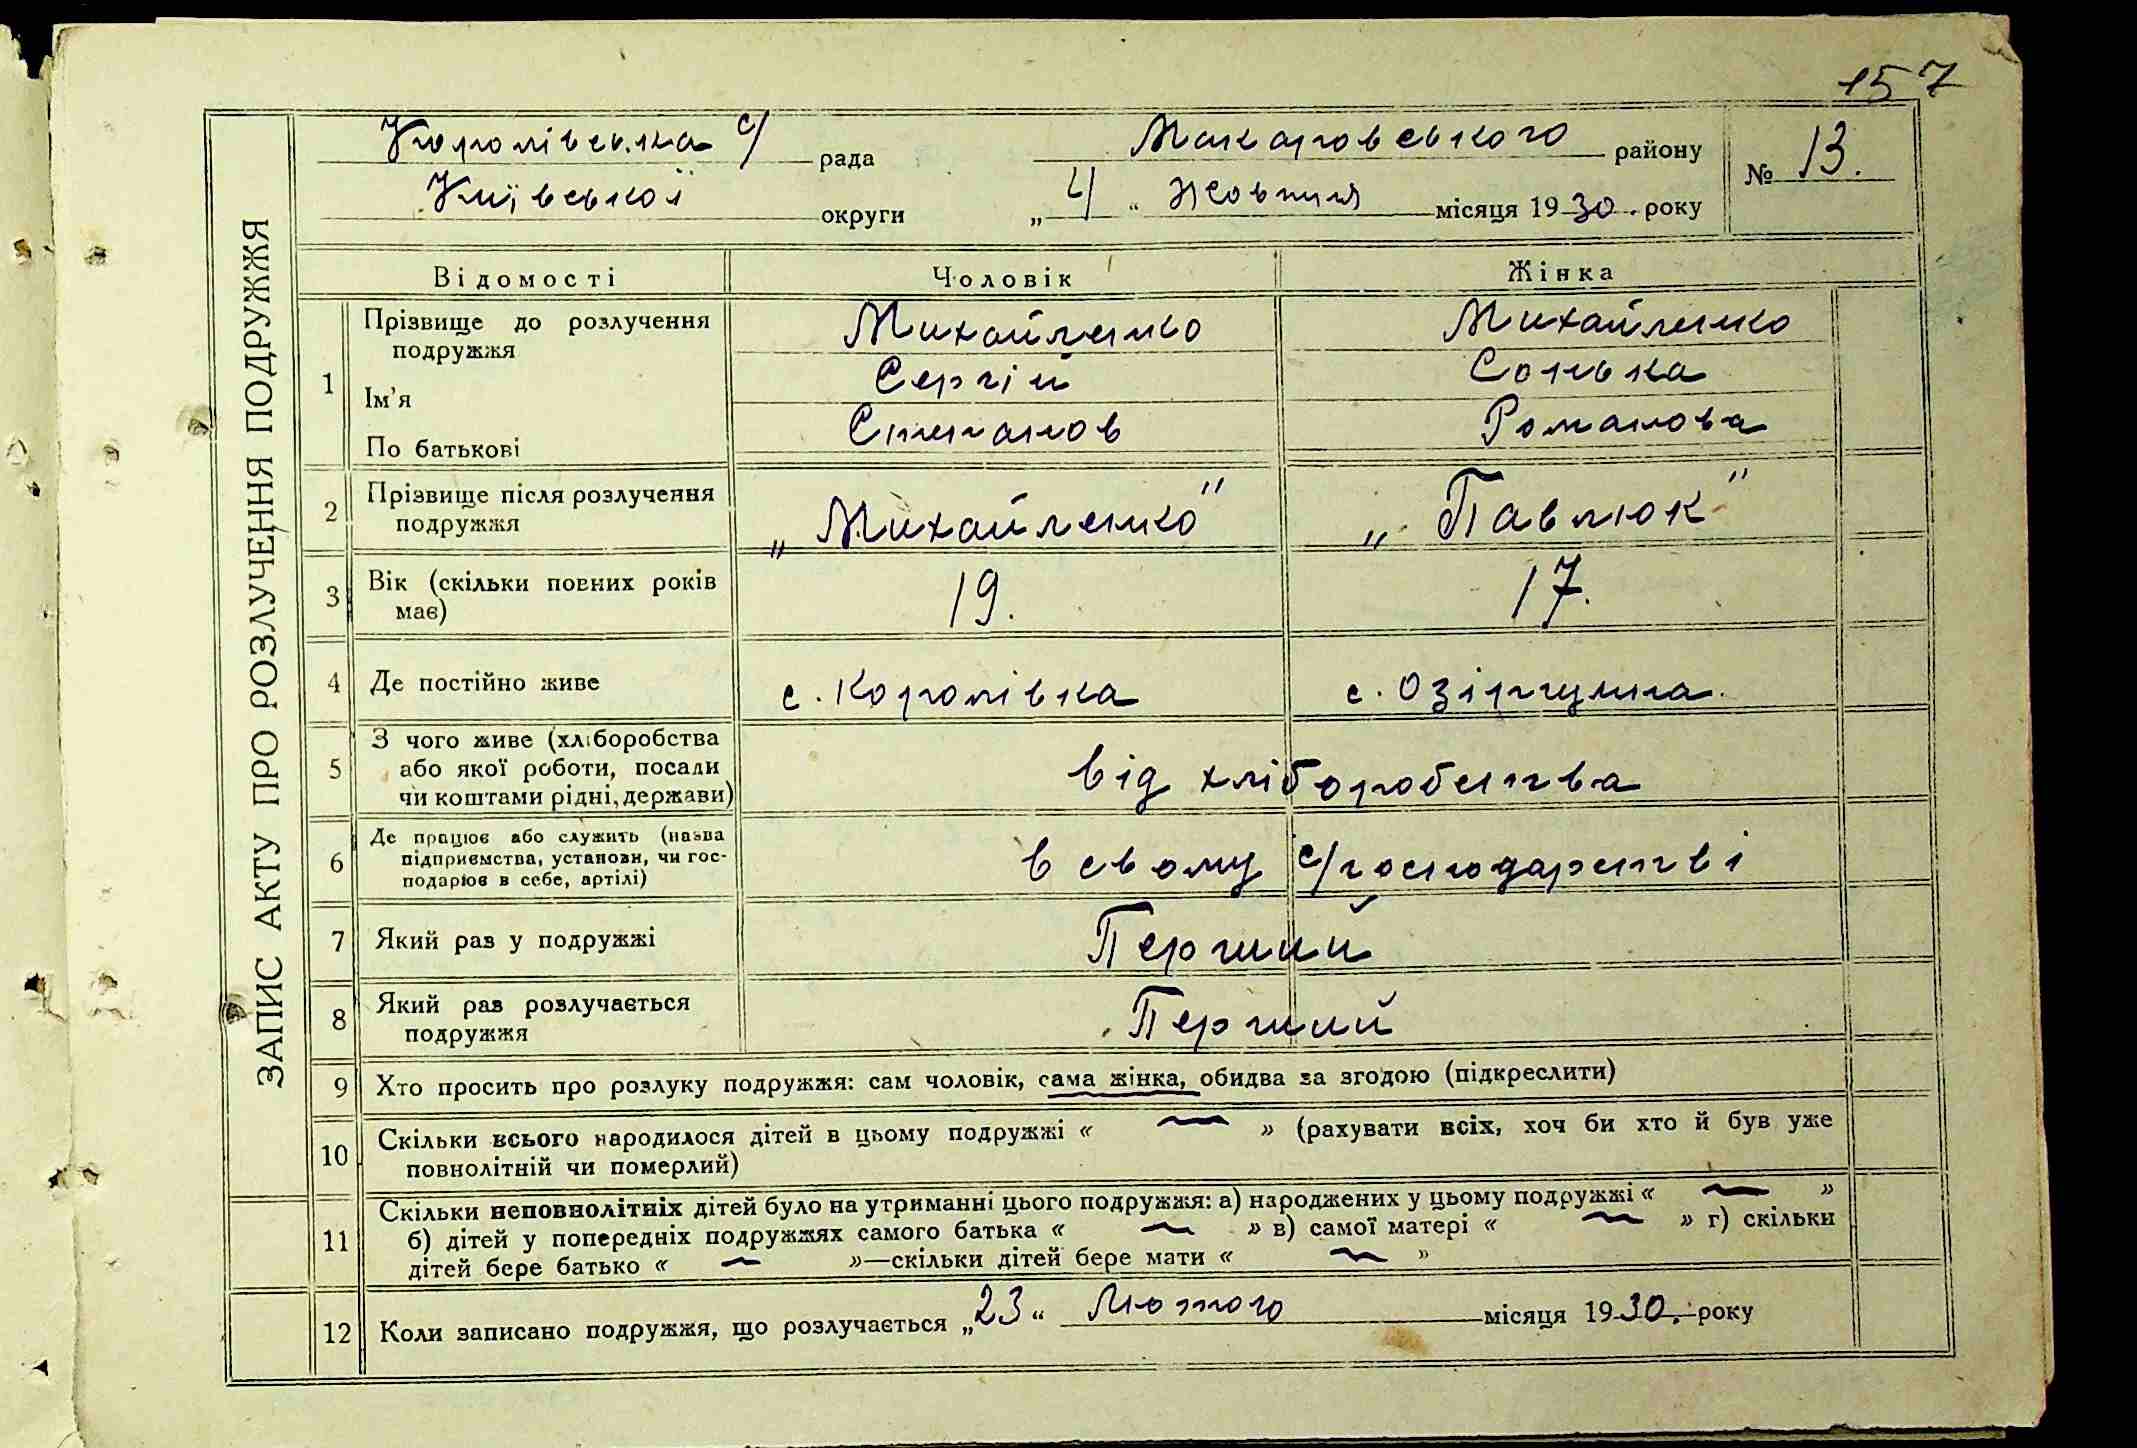 157
ЗАПИС АКТУ ПРО РОЗЛУЧЕННЯ ПОДРУЖЖЯ
Королівська с/ рада Макаровського району № 13.
Київської округи „4“ Жовтня місяця 1930. року
Відомості Чоловік Жінка
1 Прізвище до розлучення подружжя Михайленко Михайленко
Ім’я Сергій Сонька
По батькові Степанов Романова
2 Прізвище після розлучення подружжя „Михайленко“ „Павлюк“
3 Вік (скільки повних років має) 19. 17.
4 Де постійно живе с. Королівка с. Озірщина.
5 З чого живе (хліборобства
або якої роботи, посади
чи коштами рідні, держави) від хліборобства
6 Де працює або служить (назва
підприємства, установи, чи гос-
подарює в себе, артілі) в свому с/господарстві
7 Який раз у подружжі Перший
8 Який раз розлучається
подружжя Перший
9 Хто просить про розлуку подружжя: сам чоловік, сама жінка, обидва за згодою (підкреслити)
10 Скільки всього народилося дітей в цьому подружжі « — » (рахувати всіх, хоч би хто й був уже
повнолітній чи померлий)
11 Скільки неповнолітніх дітей було на утриманні цього подружжя: а) народжених у цьому подружжі « — »
б) дітей у попередніх подружжях самого батька « — » в) самої матері « — » г) скільки
дітей бере батько « — »—скільки дітей бере мати « — »
12 Коли записано подружжя, що розлучається „23“ Лютого місяця 1930. року